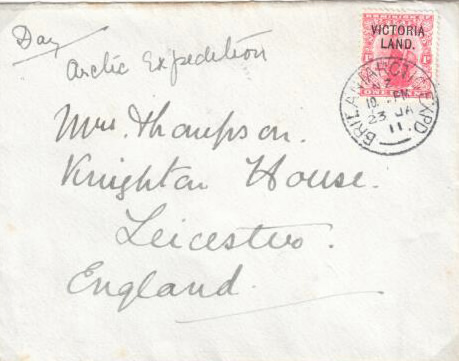 Day
Arctic Expedition
VICTORIA
LAND.
BRIT. ANTARCTIC EXPD
23 JA
11
Mrs. Thompson.
Knighton House.
Leicester.
England.